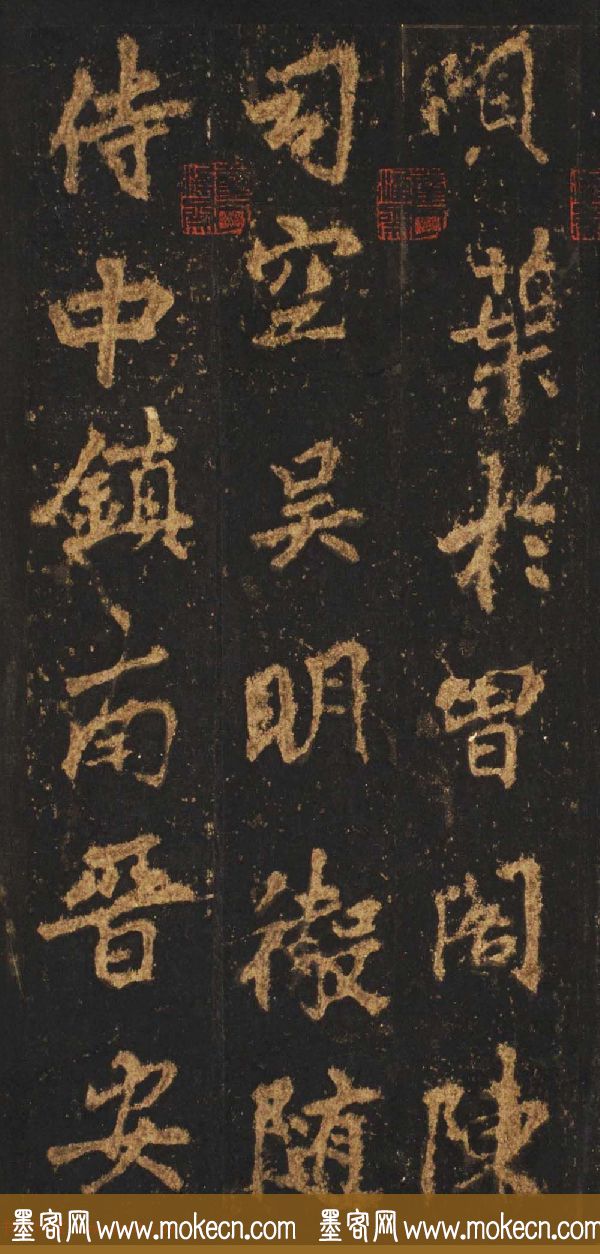 葉於胄閣陳
司空吳明徹随
侍中鎮南晉安
墨客网 www.mokecn.com 墨客网 www.mokecn.com